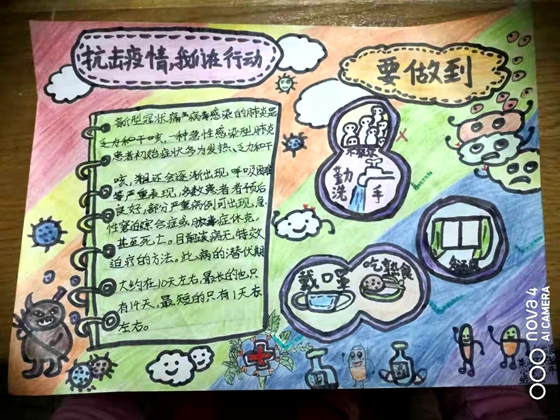 抗击疫情,我们在行动
要做到
新型冠状病毒感染的肺炎是
一种急性感染型肺炎
患者初始症状多为发热、乏力和干
咳,
呼吸困难
等严重表现,多数患者预后
良好,部分严重病例可出现急
性窘迫综合症或脓毒症休克,
甚至死亡。目前该病无特效
治疗的方法。此病的潜伏期
大约在10天左右,最长的也只
有14天,最短的只有1天左
左右。
勤洗手
戴口罩
吃熟食
nova 4
AI CAMERA